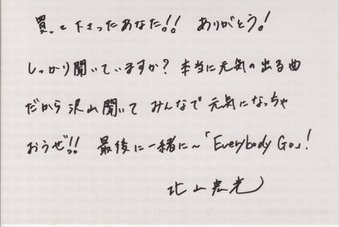 買って下さったあなた!! ありがとう!
しっかり聞いていますか? 本当に元気の出る曲
だから沢山聞いて みんなで 元気になっちゃ
おうぜ!! 最後に一緒に~「Everybody Go」!
北山宏光